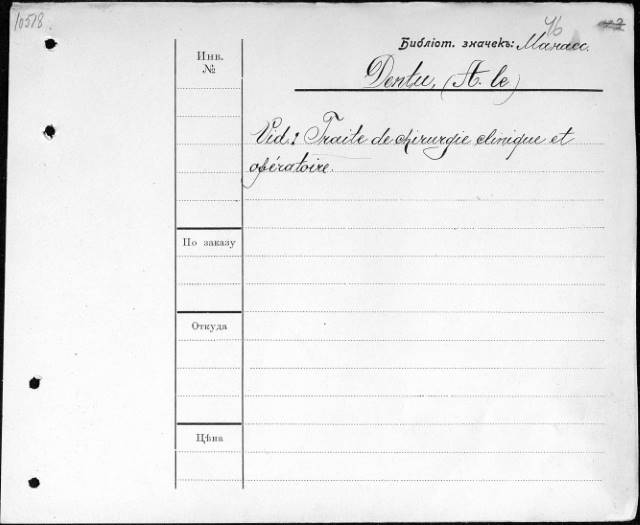 10518
46
Библіот. значекъ: Манасс.
Инв.
№
Dentu, (A. le)
Vid.: Traite de chirurgie clinique et
opératoire.
По заказу
Откуда
Цѣна